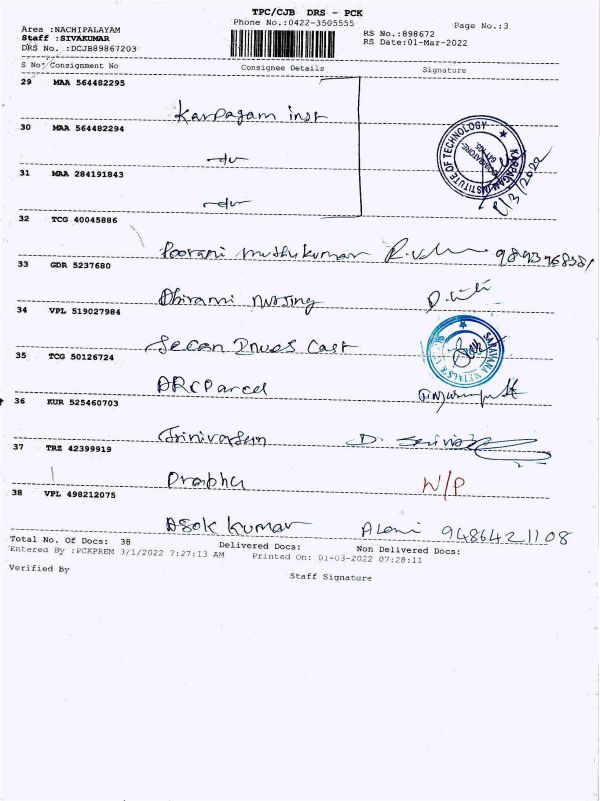 TPC/CJB DRS - PCK
Phone No.:0422-3505555
Page No.:3
Area :NACHIPALAYAM
Staff :SIVAKUMAR
DRS No. :DCJB89867203
RS No.:898672
RS Date:01-Mar-2022
S No Consignment No Consignee Details Signature
29 MAA 564482295
Karpagam inst
30 MAA 564482294
-do-
31 MAA 284191843
-do-
KARPAGAM INSTITUTE OF TECHNOLOGY
COIMBATORE
1/3/2022
32 TCG 40045886
Poorani muthukumar
33 GDR 5237680
Abirami nursing
34 VPL 519027984
SARAVANA METALS
35 TCG 50126724
ARC Parcel
36 KUR 525460703
Srinivasan D.
37 TRZ 42399919
Prabhu W/P
38 VPL 498212075
Asok kumar 9486421108
Total No. Of Docs: 38 Delivered Docs: Non Delivered Docs:
Entered By :PCKPREM 3/1/2022 7:27:13 AM Printed On: 01-03-2022 07:28:11
Verified By Staff Signature